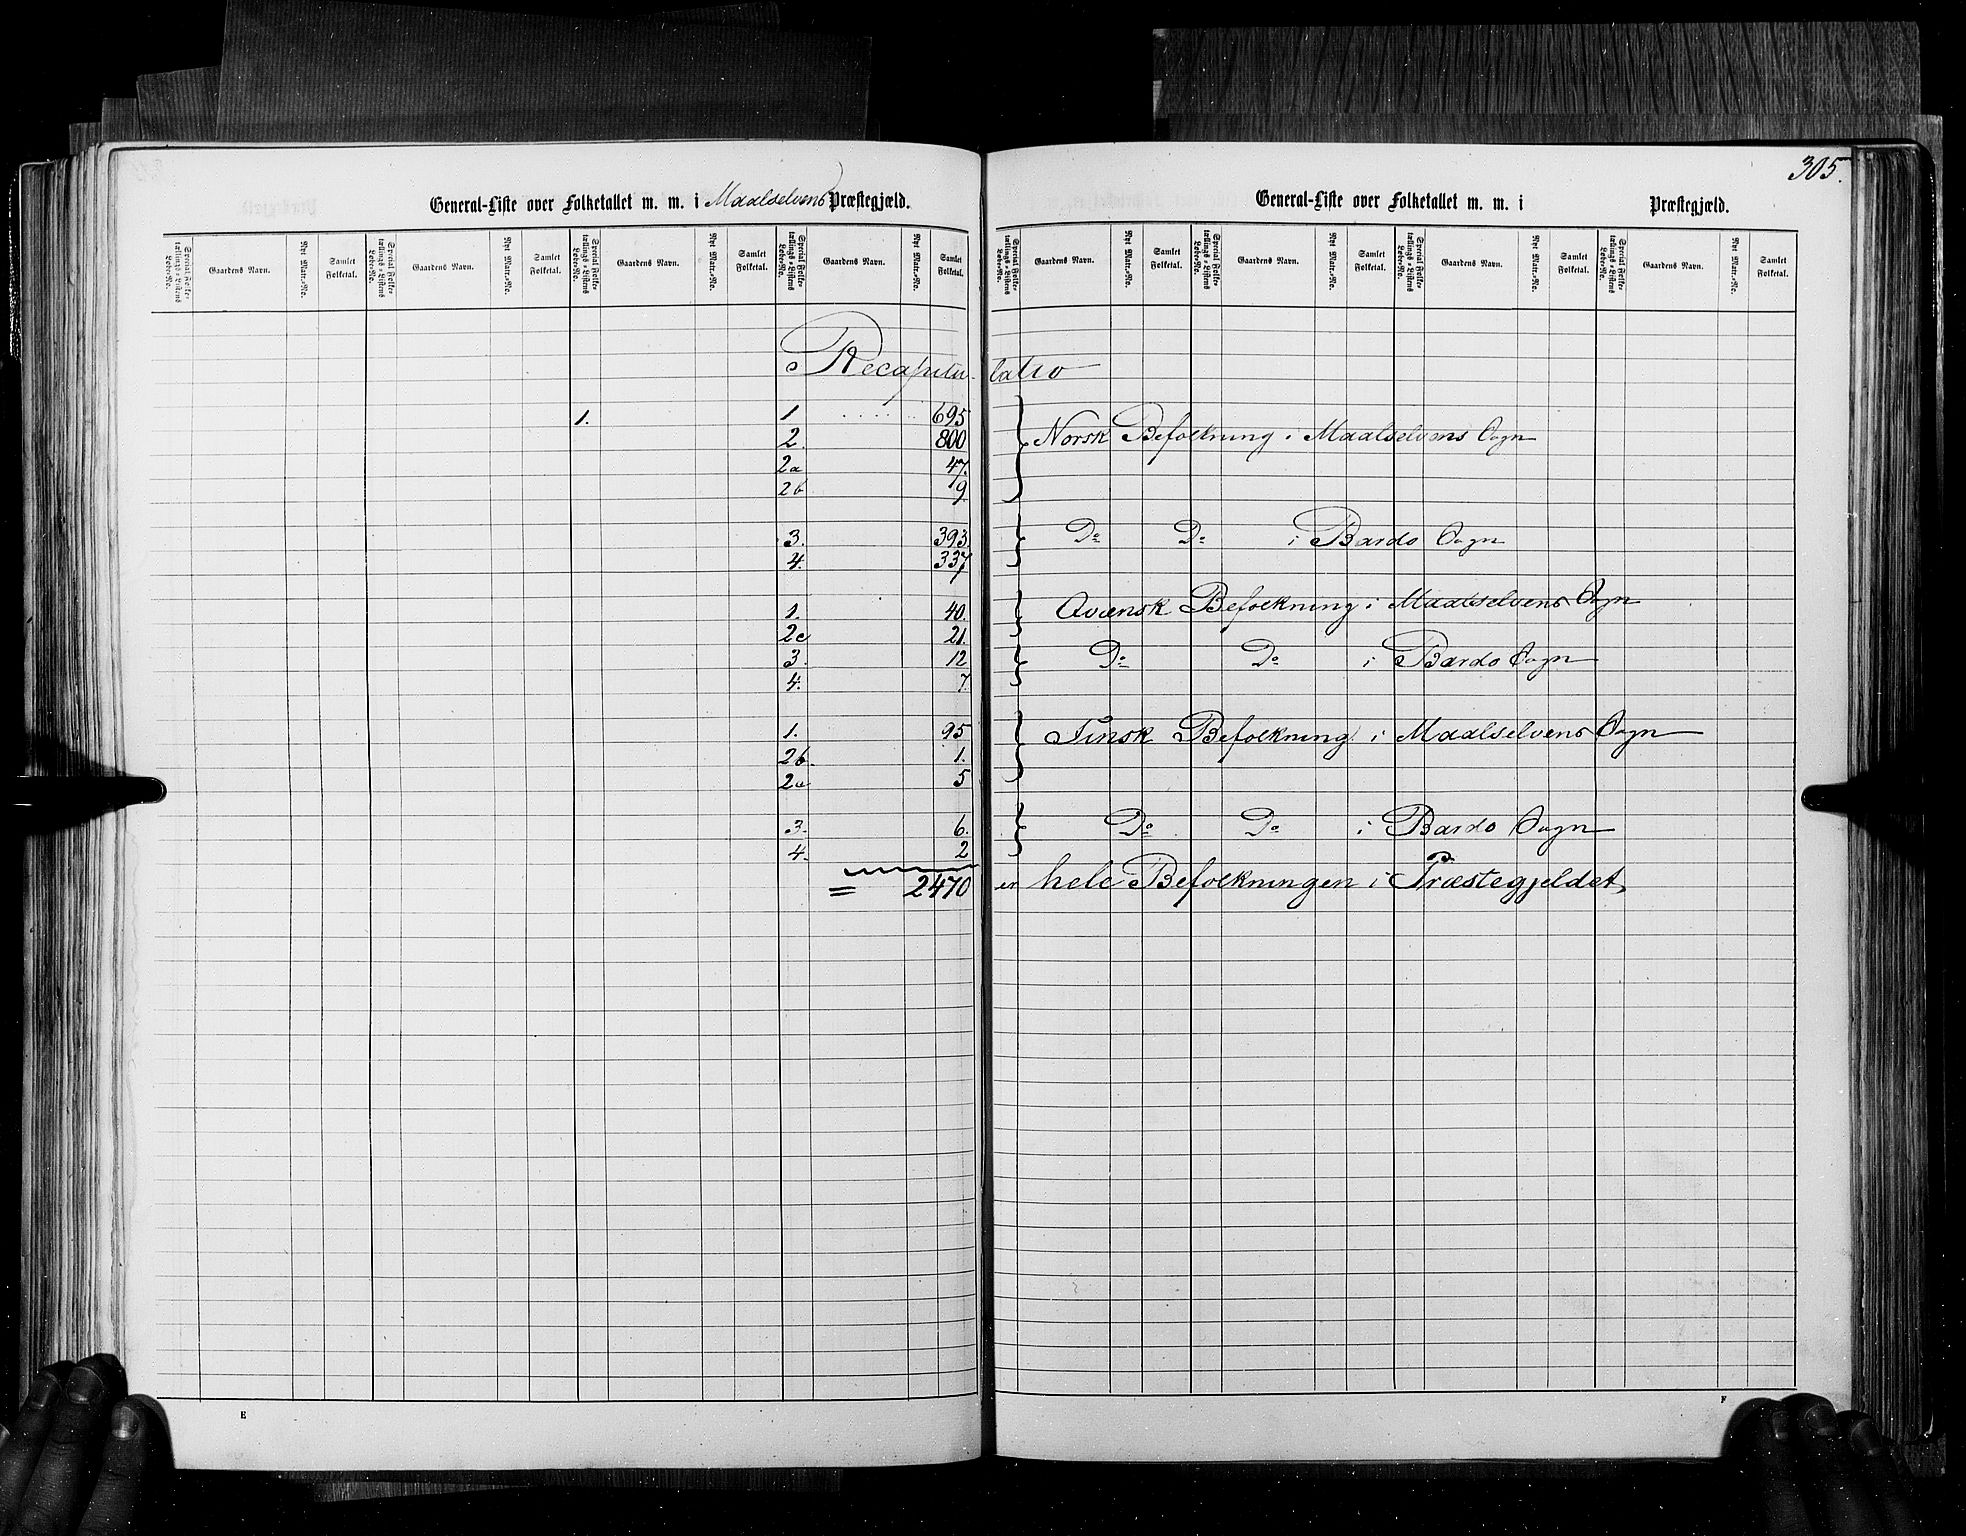 305.
General-Liste over Folketallet m. m. i Maalselvens Præstegjæld.
General-Liste over Folketallet m. m. i Præstegjæld.
Special Folketællings-Listens Løbe-No. Gaardens Navn. Nyt Matr.-No. Samlet Folketal. Special Folketællings-Listens Løbe-No. Gaardens Navn. Nyt Matr.-No. Samlet Folketal. Special Folketællings-Listens Løbe-No. Gaardens Navn. Nyt Matr.-No. Samlet Folketal. Special Folketællings-Listens Løbe-No. Gaardens Navn. Nyt Matr.-No. Samlet Folketal.
Special Folketællings-Listens Løbe-No. Gaardens Navn. Nyt Matr.-No. Samlet Folketal. Special Folketællings-Listens Løbe-No. Gaardens Navn. Nyt Matr.-No. Samlet Folketal. Special Folketællings-Listens Løbe-No. Gaardens Navn. Nyt Matr.-No. Samlet Folketal. Special Folketællings-Listens Løbe-No. Gaardens Navn. Nyt Matr.-No. Samlet Folketal.
Recapitulatio
1. 1 695
2. 800 Norsk Befolkning i Maalselvens Sogn
2a 47.
2b 9
3. 393 Do Do i Bardo Sogn
4. 337
1. 40. Qvænsk Befolkning i Maalselvens Sogn
2c 21.
3. 12 Do Do i Bardo Sogn
4. 7
1. 95 Finsk Befolkning i Maalselvens Sogn
2b. 1.
2a 5
3. 6. Do Do i Bardo Sogn
4. 2
= 2470 er hele Befolkningen i Præstegjeldet,
E
F